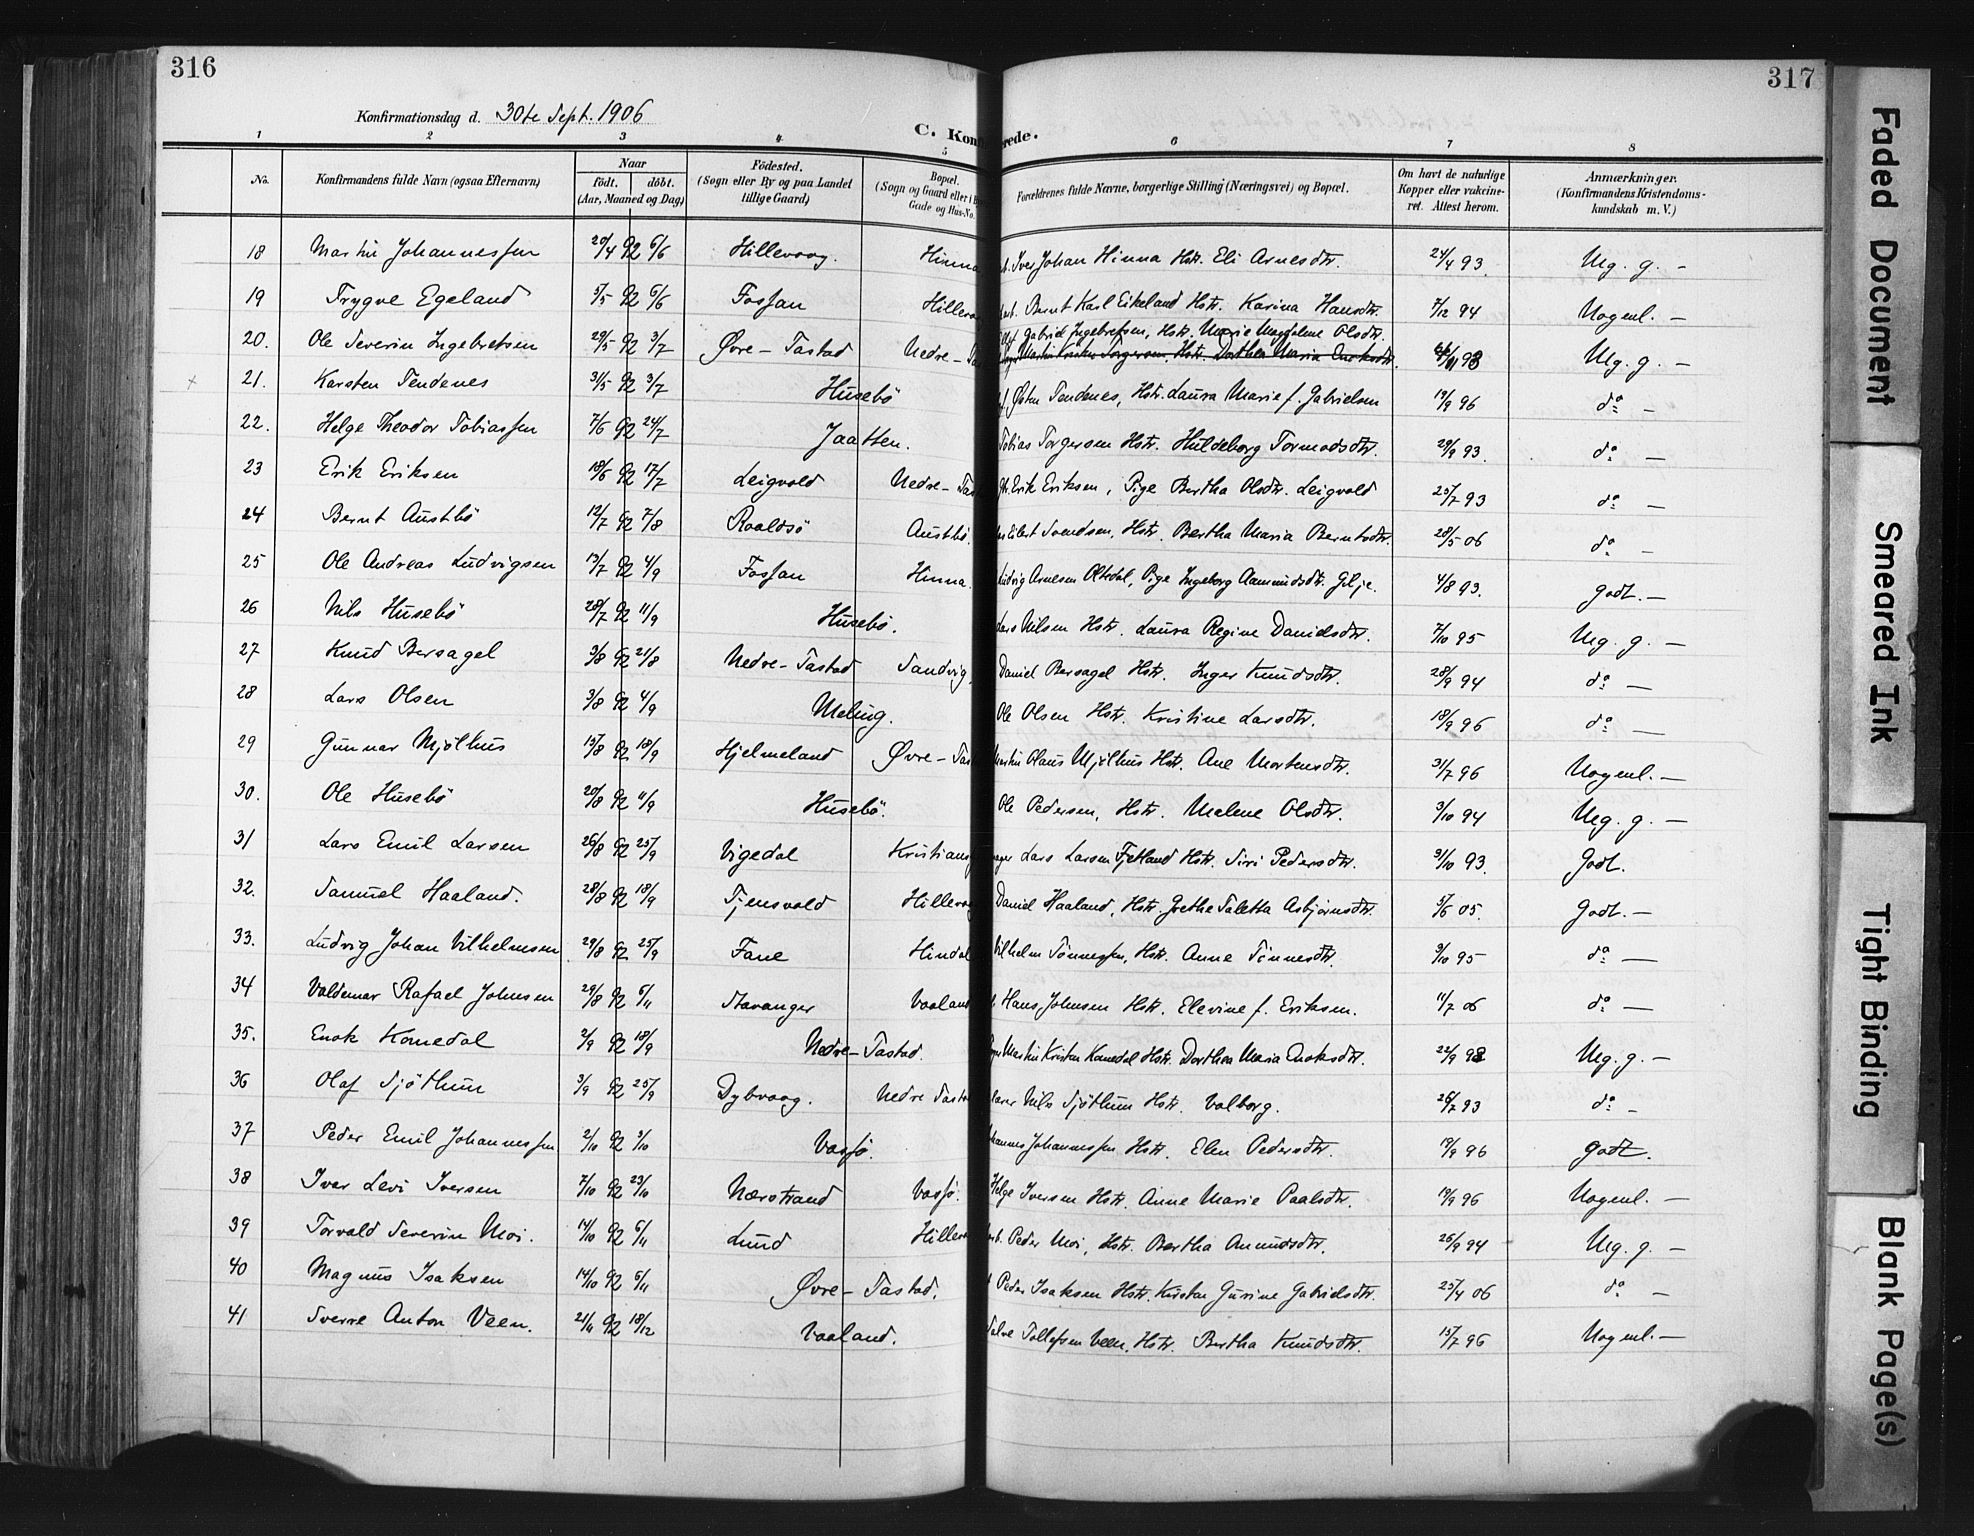 316
317
Konfirmationsdag d. 30te Sept. 1906
C. Konf rede.
1 2 3 4 5 6 7 8
No. Konfirmandens fulde Navn (ogsaa Efternavn) Naar født. døbt. (Aar, Maaned og Dag) Fødested. (Sogn eller By og paa Landet tillige Gaard) Bopæl. (Sogn og Gaard eller i By Gade og Hus-No. Forældrenes fulde Navne, borgerlige Stilling (Næringsvei) og Bopæl. Om havt de naturlige Kopper eller vakcineret. Attest herom. Anmærkninger. (Konfirmandens Kristendomskundskab m. V.)
18 Martin Johannessen 20/4 92 6/6 Hillevaag. Hinna Iver Johan Hinna Hstr. Eli Arnesdtr. 24/4 93. Mg. g. —
19 Trygve Egeland 5/5 92 6/6 Fossan Hilleva Bernt Karl Eikeland Hstr. Karina Hansdtr. 7/12 94 Nogenl. —
20. Ole Severin Ingebretsen 29/5 92 3/7 Øvre-Tastad Nedre-Tas Gabriel Ingebretsen, Hstr. Marie Magdalene Olsdtr. Martin Kristen Torgersen, Hstr. Dorthea Maria Enoksdtr. 93 Mg. g. —
21. Karsten Tendenes 31/5 92 3/7 Husebö Østen Tendenes, Hstr. Laura Marie f. Gabrielsen 19/9 96 do —
22. Helge Theodor Tobiassen 7/6 92 24/7 Jaatten. Tobias Torgersen Hstr. Huldeborg Tormodsdtr. 29/9 93. do —
23 Erik Eriksen 18/6 92 17/7 Leigvold Nedre-Tas Erik Eriksen, Pige Bertha Olsdtr. Leigvold 25/7 93 do —
24 Bernt Austbö 12/7 92 7/8 Roaldsö Austbö. Eilert Svendsen, Hstr. Bertha Maria Berntsdtr. 28/5 06 do —
25 Ole Andreas Ludvigsen 13/7 92 4/9 Fossan Hinna. Ludvig Arnesen Oltedal, Pige Ingeborg Aamundsdtr. Gilje. 4/8 93. godt. —
26 Nils Husebö 28/7 92 11/9 Husebö. Lars Nilsen Hstr. Laura Regine Danielsdtr. 7/10 95 Mg. g. —
27 Knud Bersagel 3/8 92 21/8 Nedre-Tastad Sandvig, Daniel Bersagel Hstr. Inger Knudsdtr. 28/9 94 do —
28 Lars Olsen 3/8 92 4/9 Meling. Ole Olsen Hstr. Kristine Larsdtr. 18/9 96 do —
29 Gunnar Mjölhus 15/8 92 18/9 Hjelmeland Øvre-Tas Martin Olaus Mjölhus Hstr. Ane Mortensdtr. 31/7 96 Nogenl. —
30. Ole Husebö 20/8 92 11/9 Husebö. Ole Pedersen, Hstr. Malene Olsdtr. 3/10 94 Mg. g. —
31 Lars Emil Larsen 26/8 92 25/9 Vigedal Kristians Lars Larsen Fjetland Hstr. Siri Pedersdtr. 31/10 93. Godt.
32. Samuel Haaland. 28/8 92 18/9 Tjensvold Hillevaa Daniel Haaland, Hstr. Grethe Taletta Asbjørnsdtr. 5/6 05. Godt. —
33. Ludvig Johan Vilhelmsen 29/8 92 25/9 Fane Hindal Vilhelm Tönnessen, Hstr. Anne Tönnesdtr. 3/10 95 do —
34 Valdemar Rafael Johnsen 29/8 92 6/11 Stavanger Vaaland Hans Johnsen Hstr. Elevine f. Eriksen. 11/7 06 do —
35. Enok Komedal 2/9 92 18/9 Nedre-Tastad. Martin Kristen Komedal Hstr. Dorthea Maria Enoksdtr. 22/9 93 Mg. g. —
36 Olaf Sjöthun 3/9 92 25/9 Dybvaag. Nedre Tastad Nils Sjöthun Hstr. Valborg. 26/7 93 do —
37 Peder Emil Johannessen 2/10 92 9/10 Vassö. Johannes Johannessen Hstr. Elen Pedersdtr. 19/9 96 godt.
38 Iver Levi Iversen 7/10 92 23/10 Nærstrand Vassö. Helge Iversen Hstr. Anne Marie Paalsdtr. 19/9 96 Nogenl. —
39 Torvald Severin Moi. 14/10 92 6/11 Lund Hilleva Peder Moi, Hstr. Bertha Anundsdtr. 26/9 94 Mg. g. —
40 Magnus Isaksen 14/10 92 6/11 Øvre-Tastad. Peder Isaksen Hstr. Kirsten Gurine Gabrielsdtr. 25/4 06 do —
41 Sverre Anton Veen. 21/11 92 18/12 Vaaland. Salve Tollefsen Veen, Hstr. Bertha Knudsdtr. 15/7 96 Nogenl. —
Faded Document
Smeared Ink
Tight Binding
Blank Page(s)